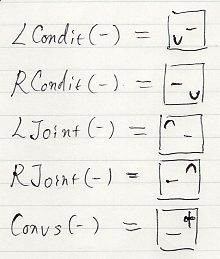 LCondit(-) =
RCondit(-) =
LJoint(-) =
RJoint(-) =
Convs(-) =